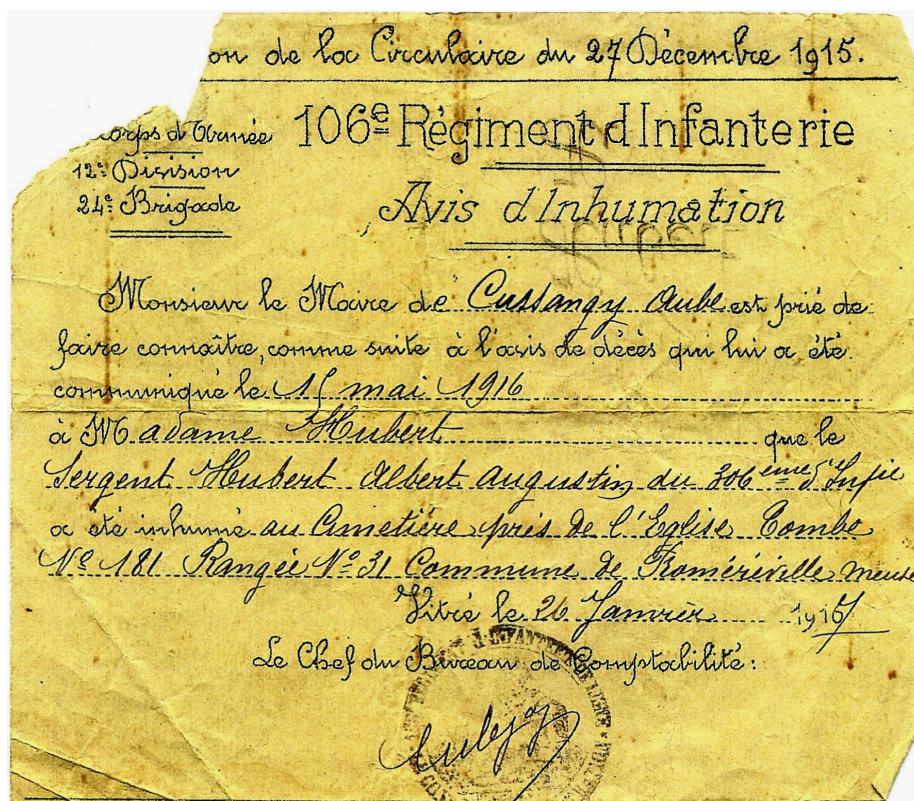 on de la Circulaire du 27 Décembre 1915.
Corps d'Armée
12e Division
24e Brigade
106e Régiment d'Infanterie
Avis d'Inhumation
Monsieur le Maire de Cussangy Aube est prié de
faire connaître, comme suite à l'avis de décès qui lui a été
communiqué le 15 mai 1916
à Madame Hubert que le
Sergent Hubert Albert Augustin du 306ème d'Infie
a été inhumé au Cimetière près de l'Eglise Tombe
No 181 Rangée No 31 Commune de Froméréville Meuse
Vitré le 26 Janvier 1917
Le Chef du Bureau de Comptabilité: